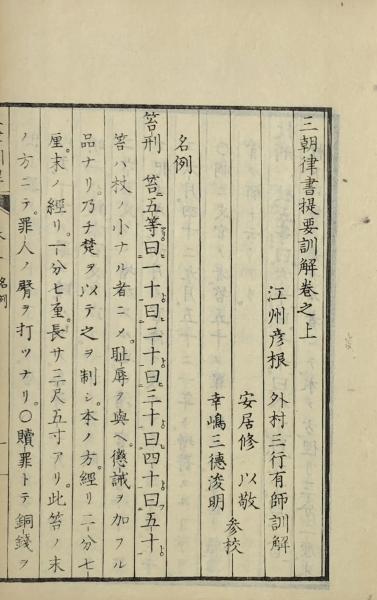 三朝律書提要訓解卷之上
江州彦根 外村三行有師訓解
安居修 以敬
幸嶋三德浚明 參校
名例
笞刑 笞五等曰一十曰二十曰三十曰四十曰五十
笞ハ杖ノ小ナル者ニメ耻辱ヲ與ヘ懲誡ヲ加フル
品ナリ乃チ楚ヲ以テ之ヲ制シ本ノ方經リ二分七
厘末ノ經リ一分七厘長サ三尺五寸アリ此笞ノ末
ノ方ニテ罪人ノ臀ヲ打ツナリ○贖罪トテ銅錢ヲ
名例